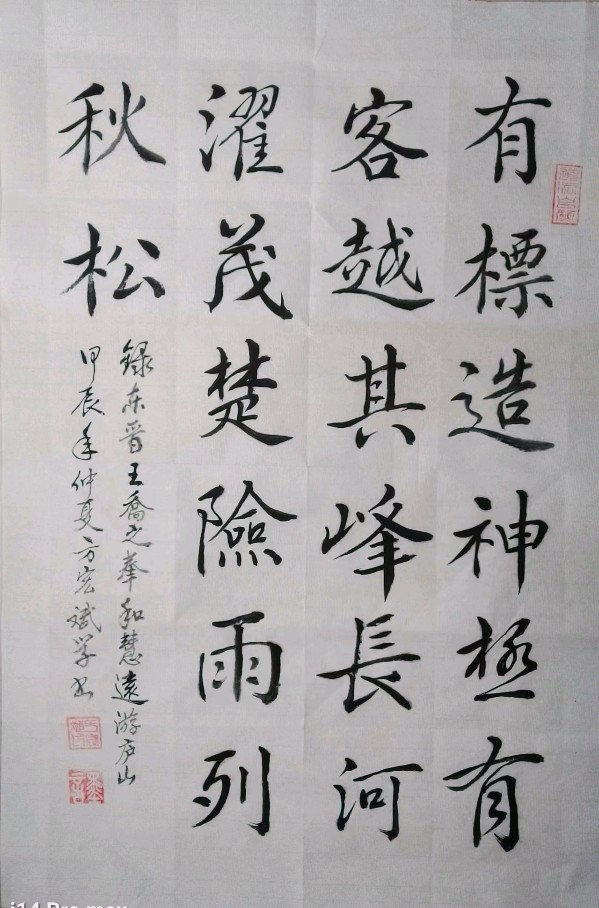 有標造神極有
客越其峰長河
濯茂楚險雨列
秋松
錄东晋王喬之奉和慧遠游庐山
甲辰年仲夏方宏斌学书